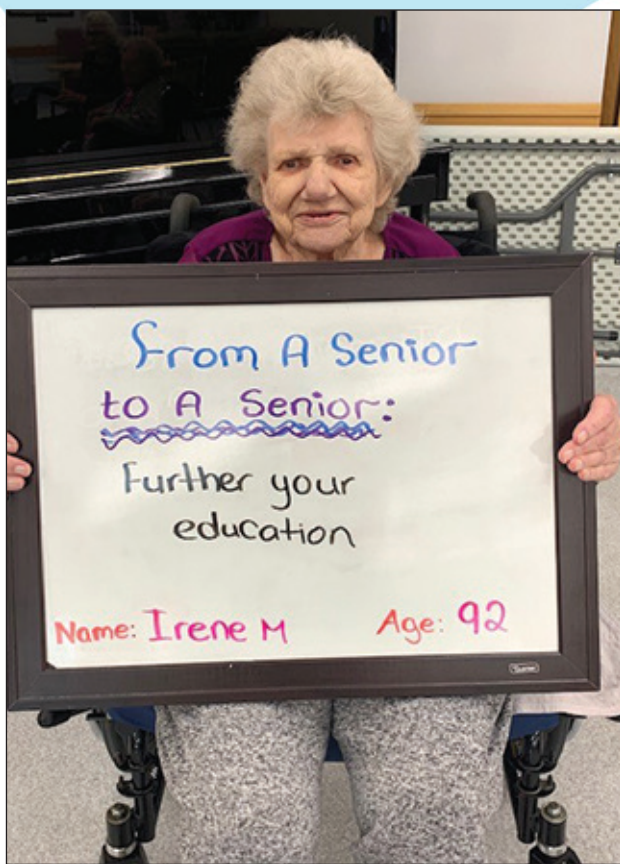 From A Senior
to A Senior:
Further your
education
Name: Irene M Age: 92
Quartet